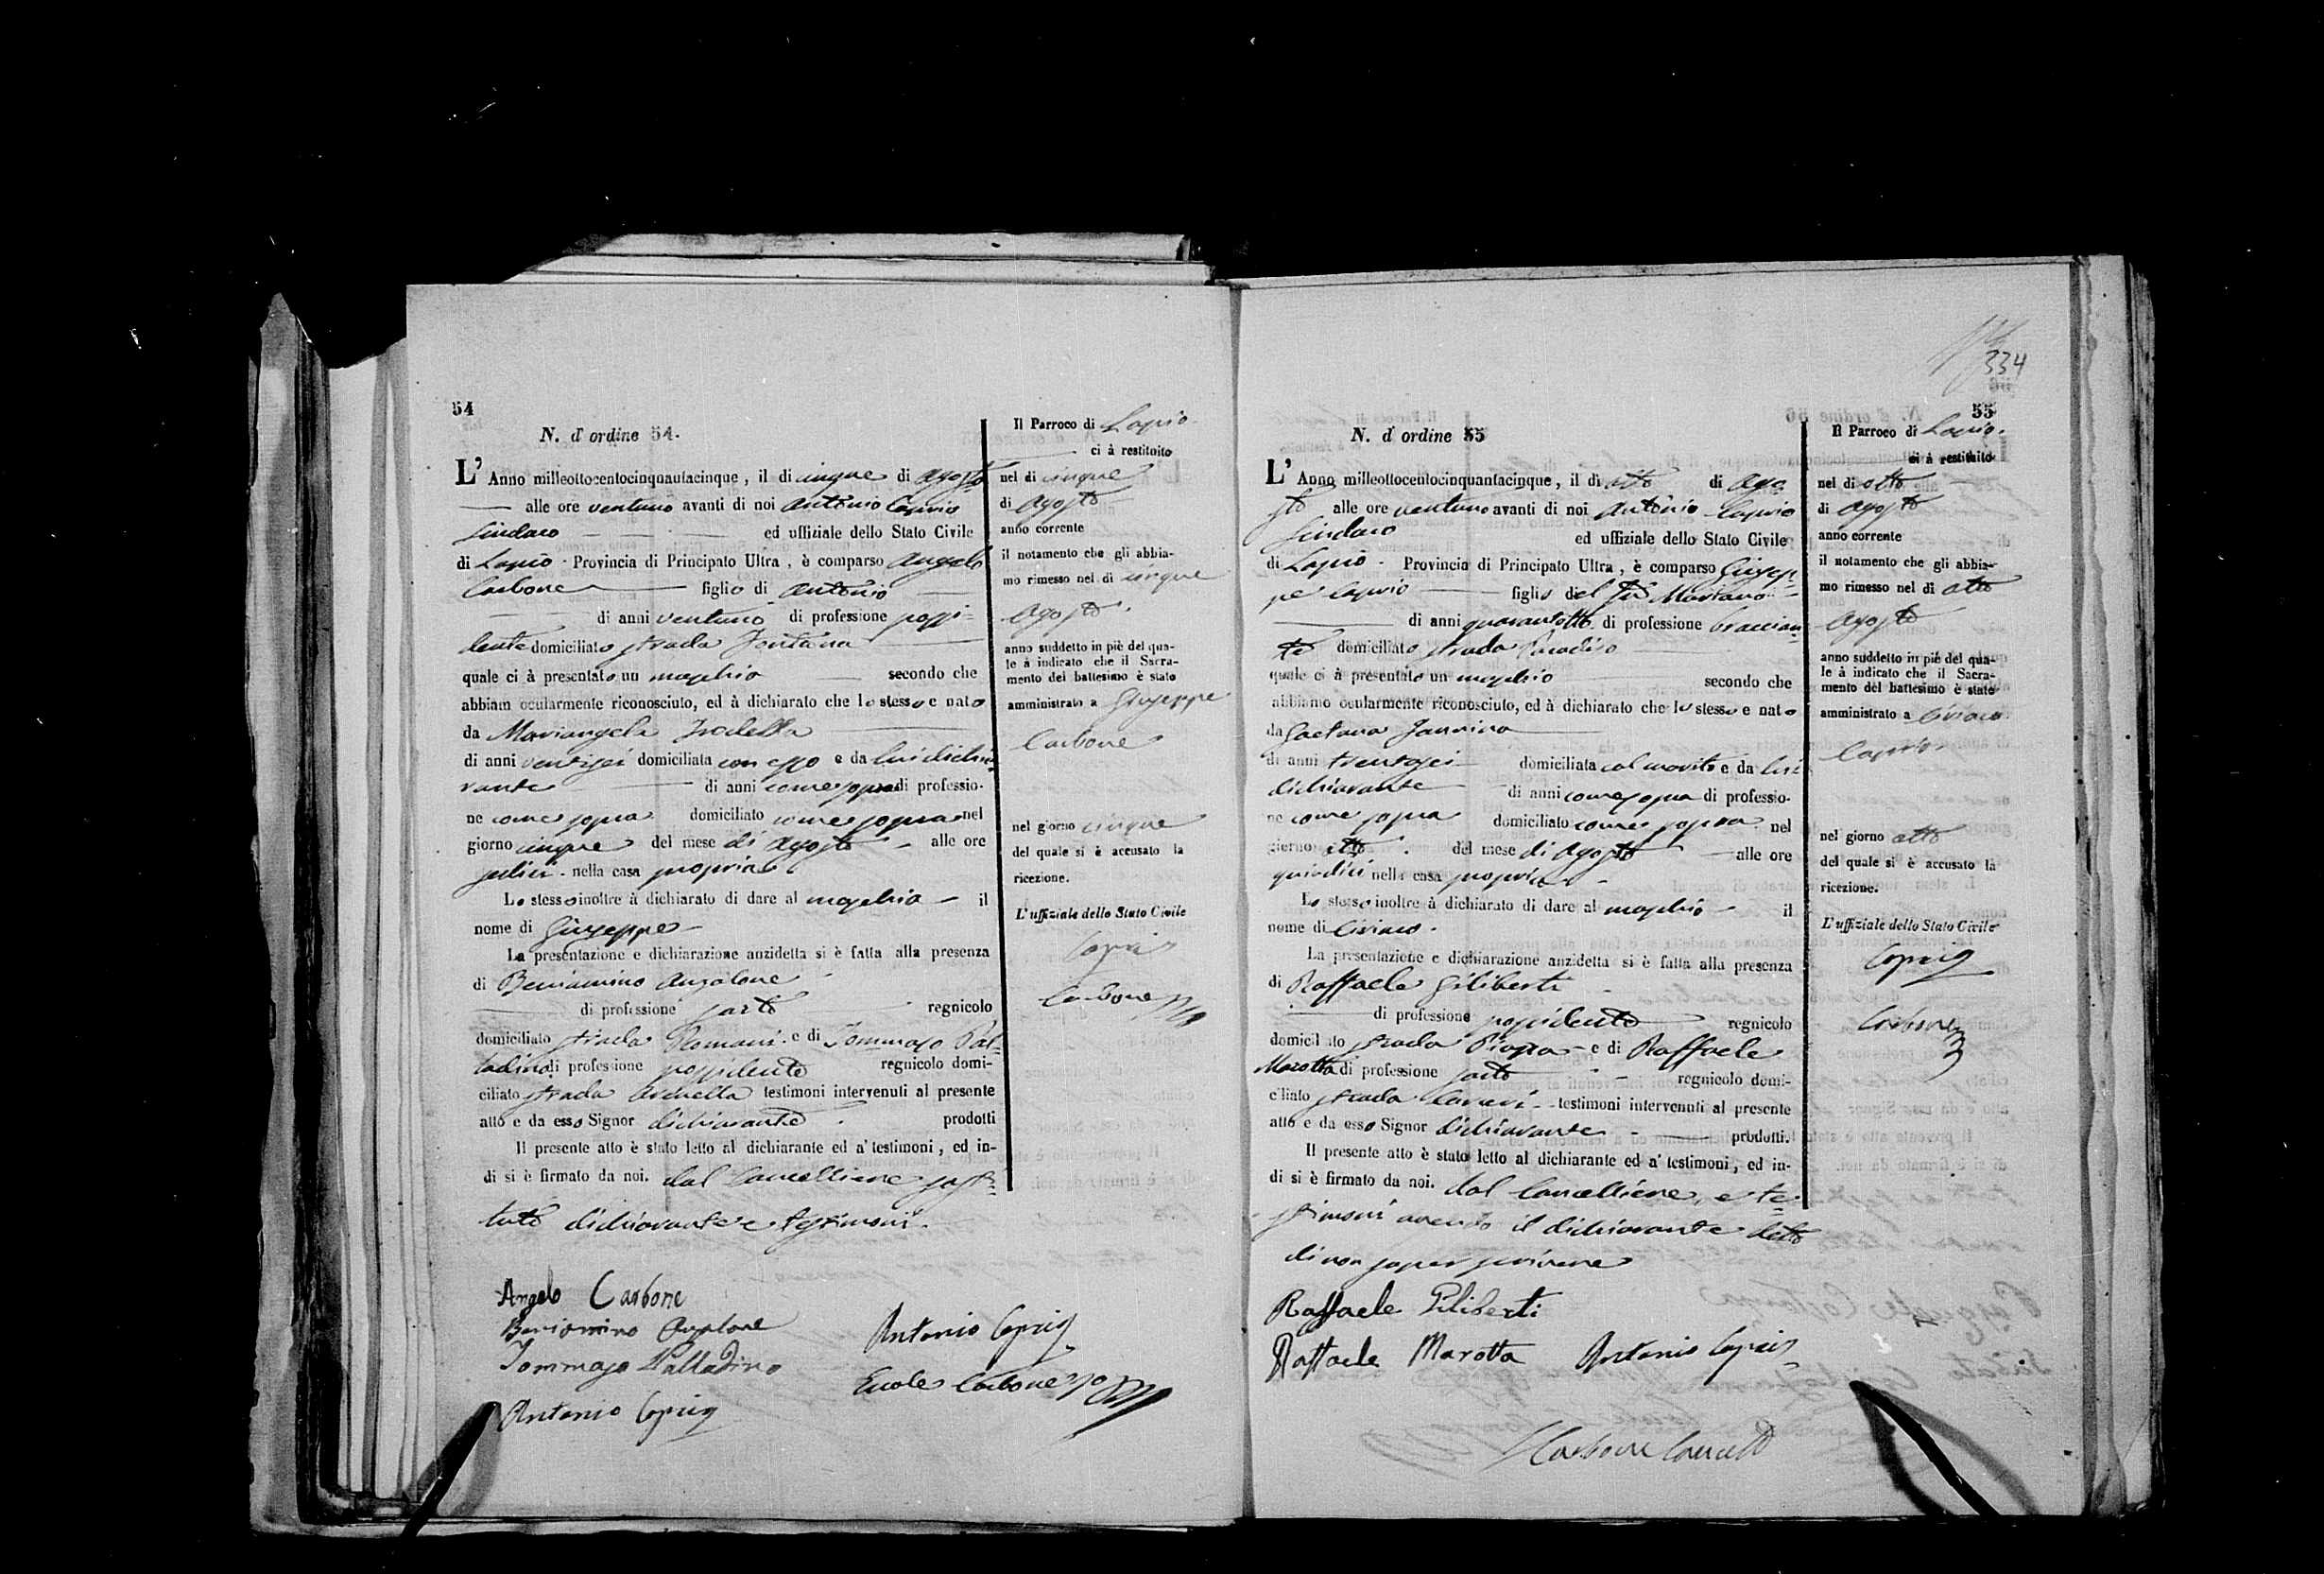 54
N. d' ordine 54.
L' Anno milleottocentocinquantacinque, il dì cinque di Agosto
alle ore ventuno avanti di noi Antonio Caprio
Sindaco ed uffiziale dello Stato Civile
di Lapio Provincia di Principato Ultra, è comparso Angelo
Carbone figlio di Antonio
di anni ventuno di professione possi-
dente domiciliato strada Fontana
quale ci à presentato un maschio secondo che
abbiam ocularmente riconosciuto, ed à dichiarato che lo stesso e nato
da Mariangela
di anni ventisei domiciliata con esso e da lui dichia-
rante di anni come sopra di professio-
ne come sopra domiciliato come sopra nel
giorno cinque del mese di Agosto alle ore
sedici nella casa propria
Lo stesso inoltre à dichiarato di dare al maschio il
nome di Giuseppe
La presentazione e dichiarazione anzidetta si è fatta alla presenza
di Beniamino Anzalone
di professione sarto regnicolo
domiciliato strada Romani e di Tommaso Pal-
ladino di professione possidente regnicolo domi-
ciliato strada testimoni intervenuti al presente
atto e da esso Signor dichiarante prodotti
Il presente atto è stato letto al dichiarante ed a' testimoni, ed in-
di si è firmato da noi. dal Cancelliere sosti-
tuto dichiarante e testimoni.
Angelo Carbone
Beniamino Anzalone
Tommaso Palladino
Antonio Caprio
Antonio Caprio
Carbone
Il Parroco di Lapio
ci à restituito
nel dì cinque
di Agosto
anno corrente
il notamento che gli abbia-
mo rimesso nel dì cinque
Agosto
anno suddetto in piè del qua-
le à indicato che il Sacra-
mento del battesimo è stato
amministrato a Giuseppe
Carbone
nel giorno cinque
del quale si è accusato la
ricezione.
L' uffiziale dello Stato Civile
Caprio
Carbone
334
55
N. d' ordine 55
L' Anno milleottocentocinquantacinque, il dì otto di Ago-
sto alle ore ventuno avanti di noi Antonio Caprio
Sindaco ed uffiziale dello Stato Civile
di Lapio Provincia di Principato Ultra, è comparso Giusep-
pe Caprio figlio del fu Mariano
di anni quarantotto di professione braccian-
te domiciliato strada Paradiso
quale ci à presentato un maschio secondo che
abbiamo ocularmente riconosciuto, ed à dichiarato che lo stesso e nato
da Gaetana Jannino
di anni trentasei domiciliata col marito e da lui
dichiarante di anni come sopra di professio-
ne come sopra domiciliato come sopra nel
giorno otto del mese di Agosto alle ore
quindici nella casa propria
Lo stesso inoltre à dichiarato di dare al maschio il
nome di Ciriaco.
La presentazione e dichiarazione anzidetta si è fatta alla presenza
di Raffaele Giliberti
di professione possidente regnicolo
domiciliato strada Piazza e di Raffaele
Marotta di professione sarto regnicolo domi-
ciliato strada testimoni intervenuti al presente
atto e da esso Signor dichiarante prodotti.
Il presente atto è stato letto al dichiarante ed a' testimoni, ed in-
di si è firmato da noi. dal Cancelliere, e te-
stimoni avendo il dichiarante detto
di non saper scrivere
Raffaele Giliberti
Raffaele Marotta Antonio Caprio
Carbone
Il Parroco di Lapio.
ci à restituito
nel dì otto
di Agosto
anno corrente
il notamento che gli abbia-
mo rimesso nel dì otto
Agosto
anno suddetto in piè del qua-
le à indicato che il Sacra-
mento del battesimo è stato
amministrato a Ciriaco
Caprio
nel giorno otto
del quale si è accusato la
ricezione.
L' uffiziale dello Stato Civile
Caprio
Carbone